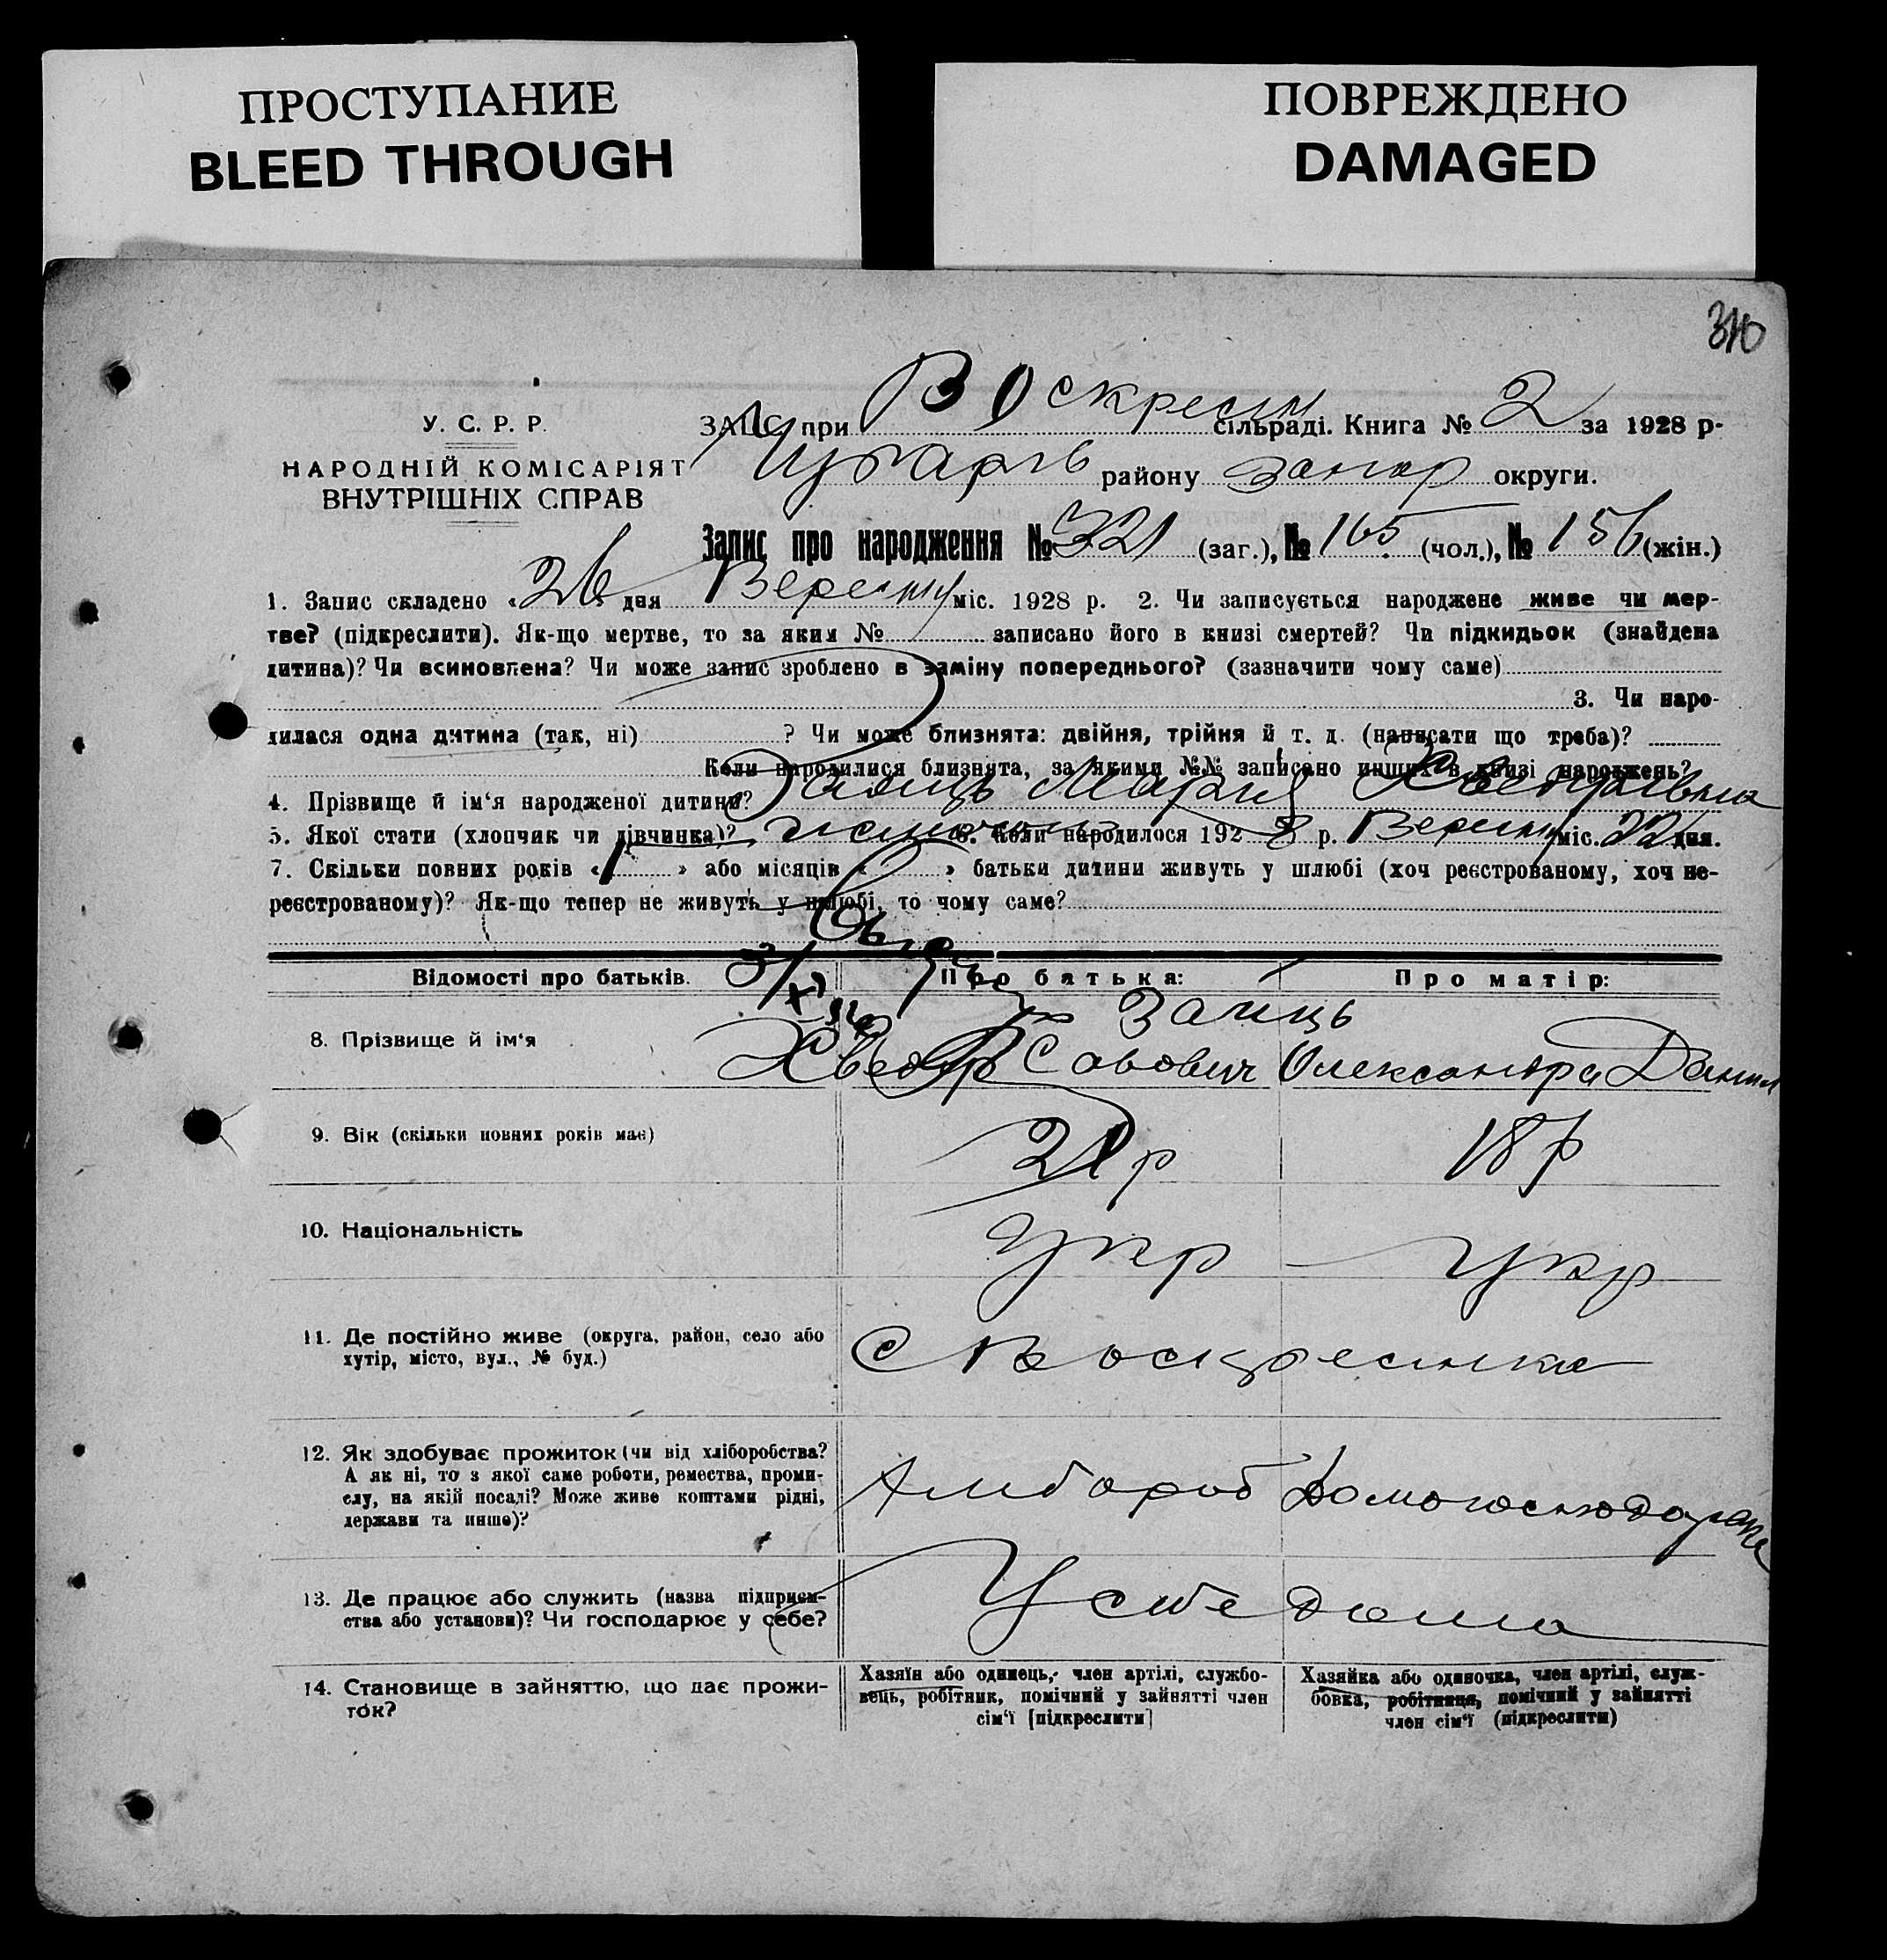 ПРОСТУПАНИЕ
BLEED THROUGH
ПОВРЕЖДЕНО
DAMAGED
310
У. С. Р. Р.
НАРОДНІЙ КОМІСАРІЯТ
ВНУТРІШНІХ СПРАВ
ЗАГС при Воскресен сільраді. Книга № 2 за 1928 р.
району Запор округи.
Запис про народження № 321 (заг.), № 165 (чол.), № 156 (жін.)
1. Запис складено «26 дня Вересня міс. 1928 р. 2. Чи записується народжене живе чи мер-
тве? (підкреслити). Як-що мертве, то за яким № записано його в книзі смертей? Чи підкидьок (знайдена
дитина)? Чи всиновлена? Чи може запис зроблено в заміну попереднього? (зазначити чому саме)
3. Чи наро-
дилася одна дитина (так, ні) ? Чи може близнята: двійня, трійня й т. д. (написати що треба)?
Коли народилися близнята, за якими №№ записано инших в книзі народжень?
4. Прізвище й ім‘я народженої дитини? Заиць Мария Хведрівна
5. Якої стати (хлопчик чи дівчинка)? 6. Коли народилося 1928 р. Вересня міс. 22 дня.
7. Скільки повних років « » або місяців « » батьки дитини живуть у шлюбі (хоч реєстрованому, хоч не-
реєстрованому)? Як-що тепер не живуть у шлюбі, то чому саме?
Відомості про батьків. Про батька: Про матір:
Заиць
8. Прізвище й ім‘я Хведор Савович Олександра Данил
9. Вік (скільки повних років має) 21 р 18 р
10. Національність Укр Укр
11. Де постійно живе (округа, район, село або
хутір, місто, вул., № буд.)
С Воскресенка
12. Як здобуває прожиток (чи від хліборобства?
А як ні, то з якої саме роботи, ремества, проми-
слу, на якій посаді? Може живе коштами рідні,
держави та инше)?
Хлибороб Домогосподарка
13. Де працює або служить (назва підприєм-
ства або установи)? Чи господарює у себе?
У себе дома
14. Становище в зайняттю, що дає прожи-
ток?
Хазяїн або одинець, член артілі, службо-
вець, робітник, помічний у зайнятті член
сім‘ї [підкреслити]
Хазяйка або одиночка, член артілі, служ-
бовка, робітниця, помічний у зайнятті
член сім‘ї (підкреслити)